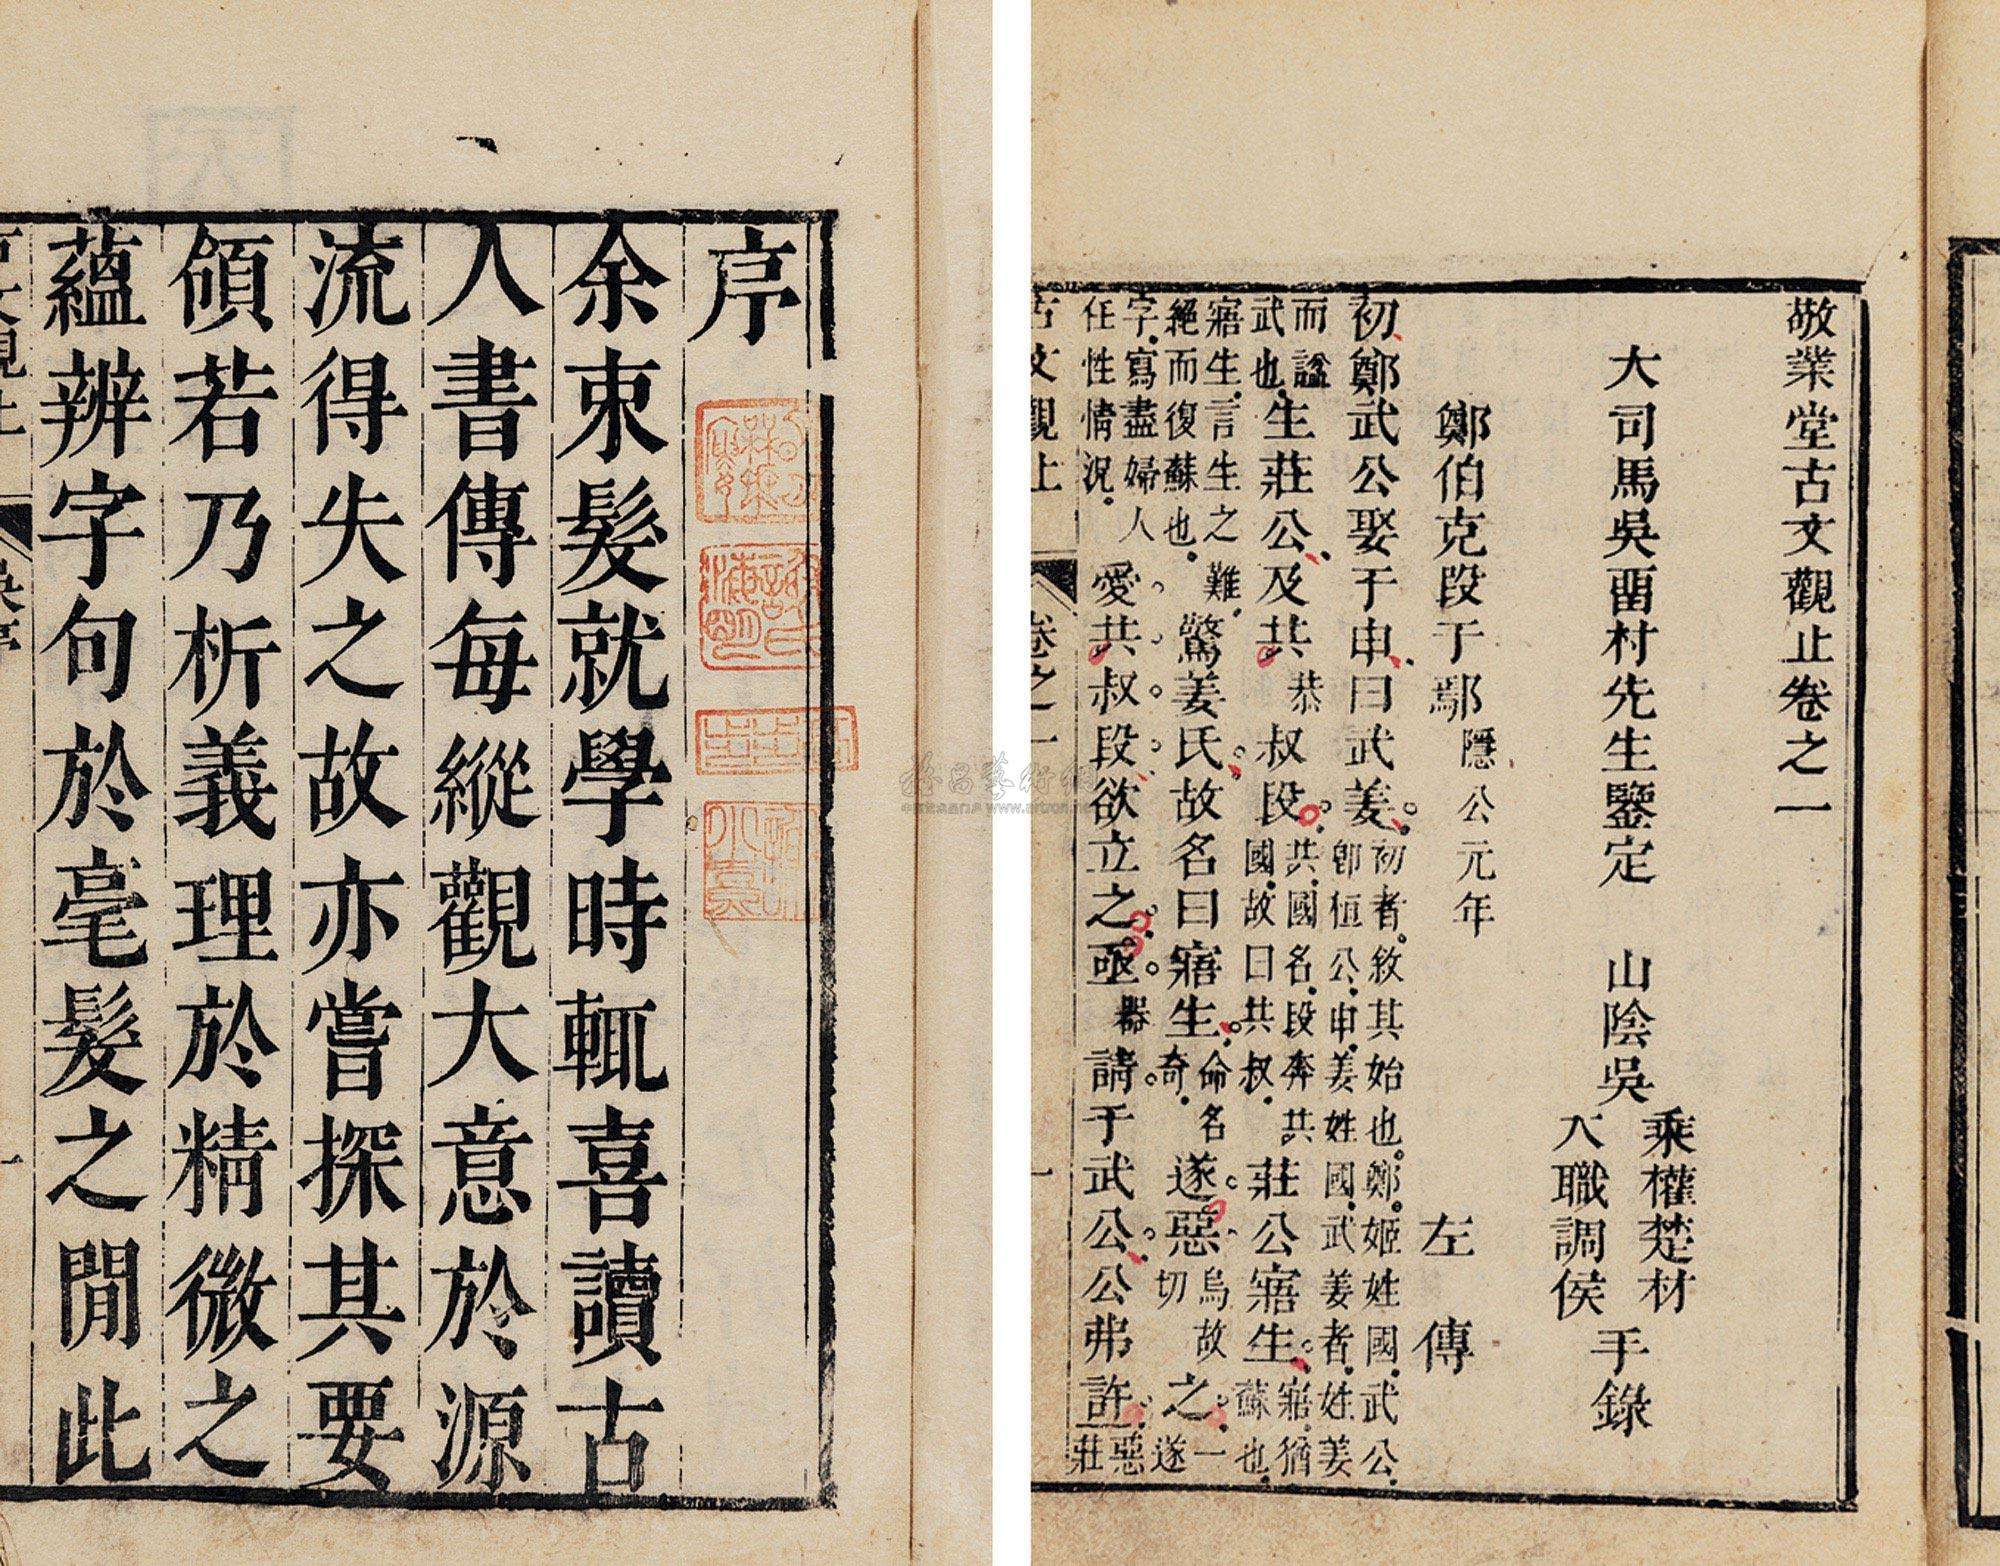 序
余束髮就學時輒喜讀古
人書傳每縱觀大意於源
流得失之故亦嘗探其要
領若乃析義理於精微之
蘊辨字句於毫髮之閒此
敬業堂古文觀止卷之一
大司馬吳畱村先生鑒定　山陰吳乘權楚材大職調侯手錄
鄭伯克段于鄢隱公元年　左傳
初鄭武公娶于申曰武姜。初者.敘其始也.鄭.姬姓國.武公.卽桓公.申.姜姓國.武姜者.姓姜
而諡武也.生莊公及共恭叔段。共.國名.段奔共國.故曰共叔.莊公寤生。寤.猶蘇也.
寤生.言生之難.絕而復蘇也.驚姜氏故名曰寤生。命名奇.遂惡烏故切之一遂
字.寫盡婦人任性情況.愛共叔段欲立之。亟器請于武公公弗許惡莊
古文觀止　卷之一　一